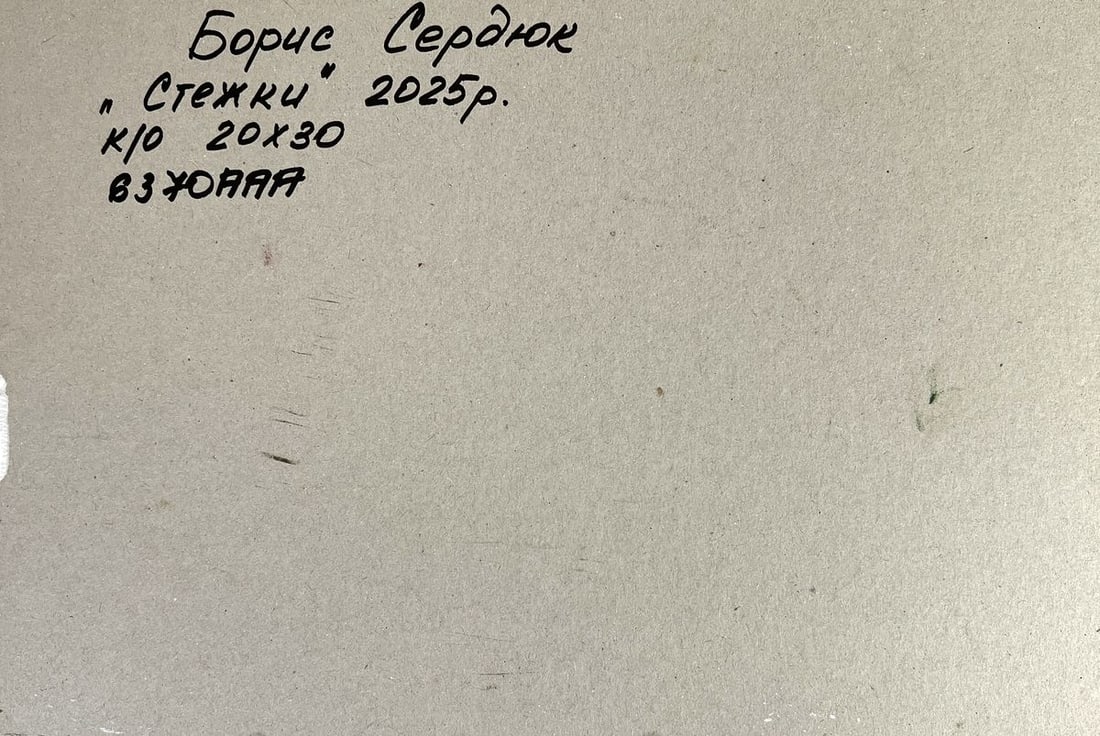 Борис Сердюк
„Стежки" 2025р.
к/о 20х30